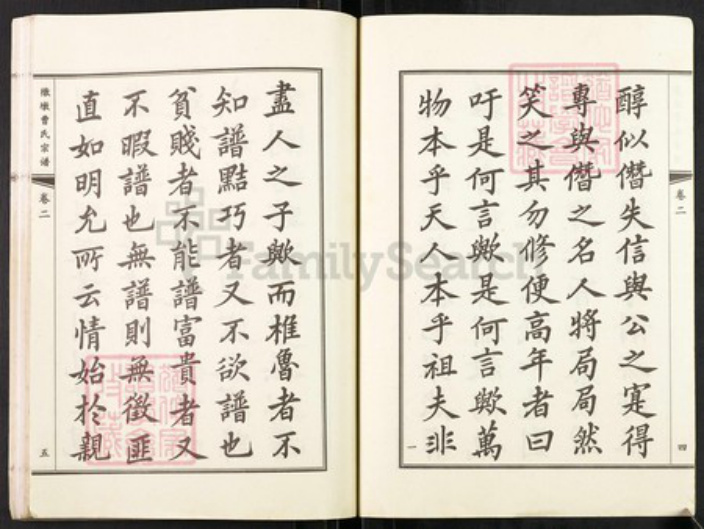 醇似僭失信與公之寔得
專與僭之名人將局局然
笑之其勿修便高年者曰
吁是何言歟是何言歟萬
物本乎天人本乎祖夫非
卷二
四
一
盡人之子歟而椎魯者不
知譜黠巧者又不欲譜也
貧賤者不能譜富貴者又
不暇譜也無譜則無徵匪
直如明允所云情始於親
曹氏宗谱
卷二
五
FamilySearch